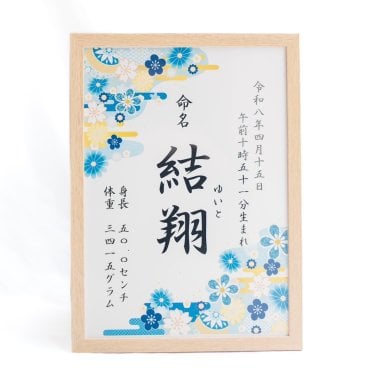 令和八年四月十五日
午前十時五十一分生まれ
命名
結翔
ゆいと
身長 五〇.〇センチ
体重 三四一五グラム